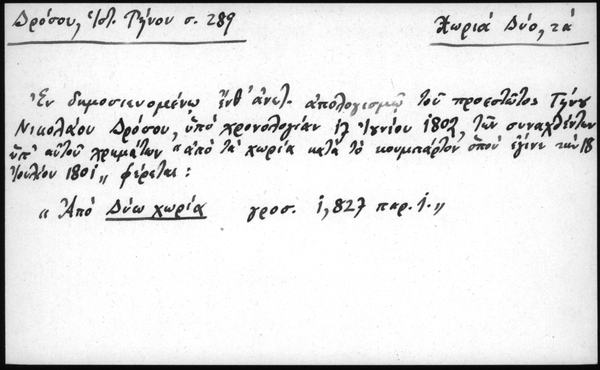 Δρόσου, Ἱστ. Τήνου σ. 289
Χωριά Δύο, τά
Ἐν δημοσιευομένῳ ἔνθ' ἀνωτ. ἀπολογισμῷ τοῦ προεστῶτος Τήνου
Νικολάου Δρόσου, ὑπό χρονολογίαν 17 Ἰουνίου 1802, τῶν συναχθέντων
ὑπ' αὐτοῦ χρημάτων "ἀπό τά χωρία κατά τό κουμπάρτον ὁποῦ ἐγινε την 18
Ἰουλίου 1801" φέρεται:
"Ἀπό Δύω χωρία γροσ. 1,827 παρ. 1."